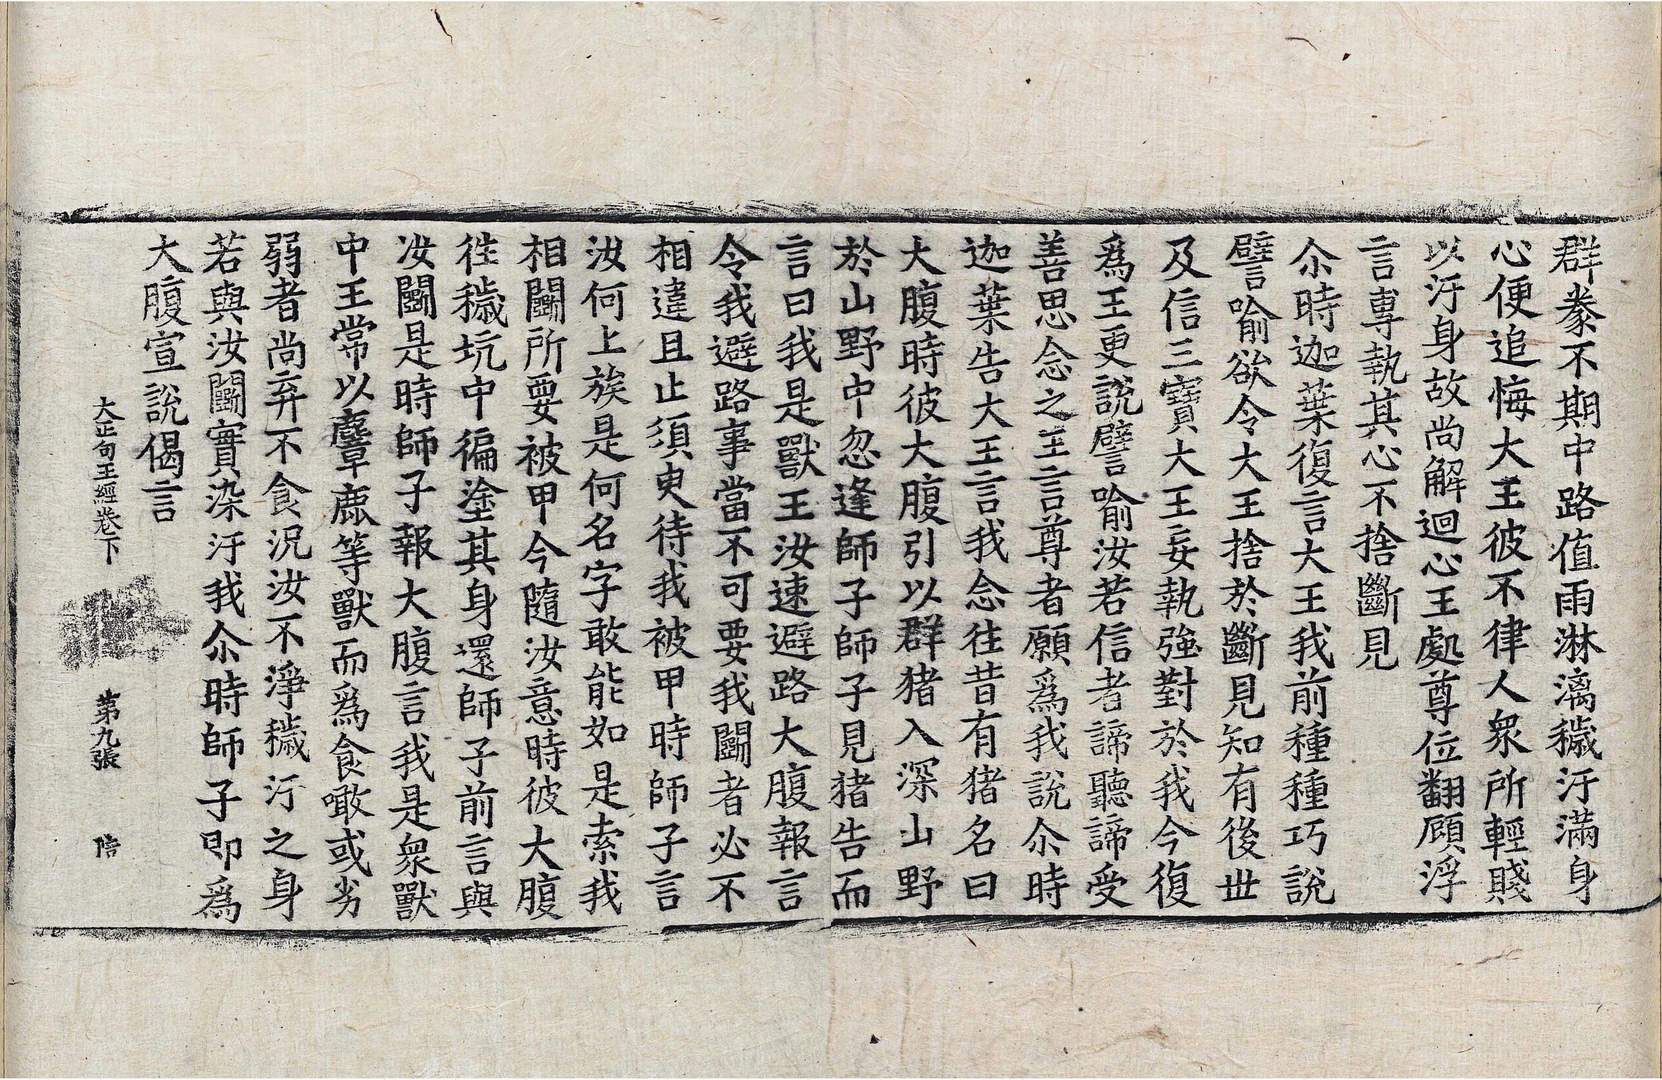 群豢不期中路值雨淋漓穢汙滿身
心便追悔大王彼不律人衆所輕賤
以汙身故尚解迴心王處尊位翻顧浮
言專執其心不捨斷見
尒時迦葉復言大王我前種種巧說
譬喻欲令大王捨於斷見知有後世
及信三寶大王妄執強對於我今復
爲王更說譬喻汝若信者諦聽諦受
善思念之王言尊者願爲我說尒時
迦葉告大王言我念往昔有猪名曰
大腹時彼大腹引以群猪入深山野
於山野中忽逢師子師子見猪告而
言曰我是獸王汝速避路大腹報言
令我避路事當不可要我鬪者必不
相違且止須臾待我被甲時師子言
汝何上族是何名字敢能如是索我
相鬪所要被甲今隨汝意時彼大腹
徃穢坑中徧塗其身還師子前言與
汝鬪是時師子報大腹言我是衆獸
中王常以麞鹿等獸而爲食噉或劣
弱者尚弃不食況汝不淨穢汙之身
若與汝鬪實染汙我尒時師子即爲
大腹宣說偈言
大正句王經卷下 第九張